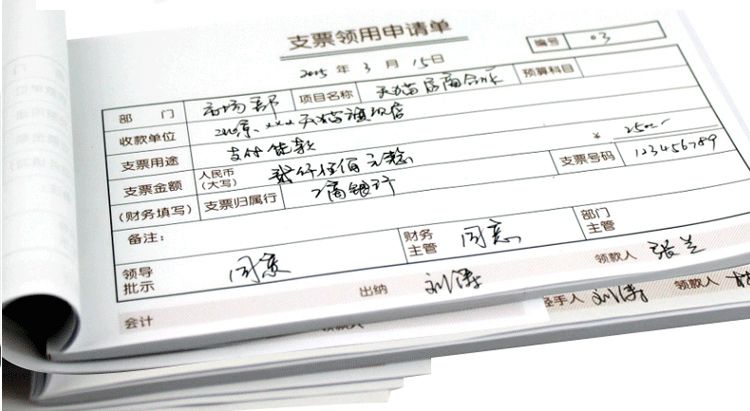 支票领用申请单
编号 03
2015 年 3 月 15 日
部 门 市场部 项目名称 天猫 预算科目
收款单位
支票用途 支付货款
支票金额 人民币(大写) 贰仟伍佰元整 ¥ 2500
(财务填写) 支票归属行 工商银行 支票号码 123456789
备注:
领导批示 同意 财务主管 同意 部门主管
会计 出纳 刘涛 领款人 张兰
领款人 经手人 刘涛 领款人